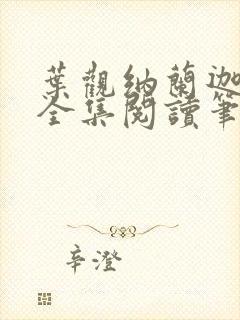 葉觀納蘭迦
全集閱讀筆
辛澄